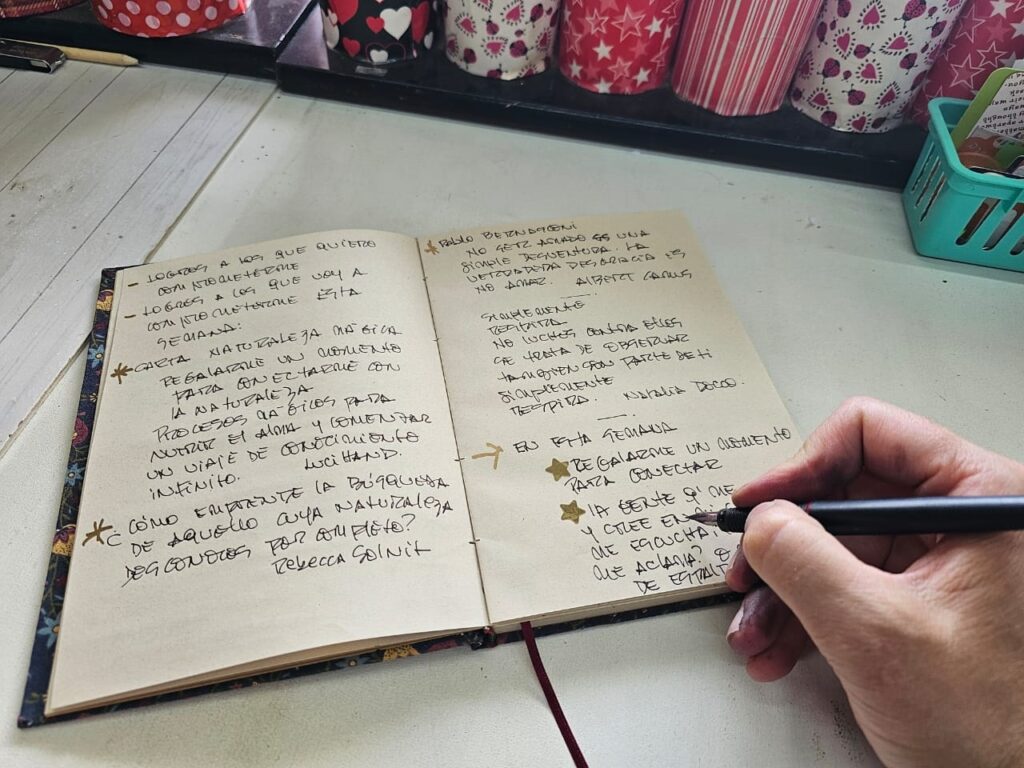 - LOGROS A LOS QUE QUIERO
COMPROMETERME
- LOGROS A LOS QUE VOY A
COMPROMETERME ESTA
SEMANA:
CARTA NATURALEZA MÁGICA
REGALARME UN MOMENTO
PARA CONECTARME CON
LA NATURALEZA
PROCESOS MÁGICOS PARA
NUTRIR EL ALMA Y COMENZAR
UN VIAJE DE CONOCIMIENTO
INFINITO.
¿ CÓMO EMPRENTE LA BÚSQUEDA
DE AQUELLO CUYA NATURALEZA
DESCONOCES POR COMPLETO?
REBECCA SOLNIT
PABLO BERNASCONI
NO SER AMADO ES UNA
SIMPLE DESVENTURA. LA
VERDADERA DESGRACIA ES
NO AMAR. ALBERT CAMUS
SIMPLEMENTE
RESPIRA.
NO LUCHES CONTRA ELLOS
SE TRATA DE OBSERVAR
TAMBIEN SON PARTE DE TI
SIMPLEMENTE
RESPIRA. NATALIA DOCO.
EN ESTA SEMANA
REGALARME UN MOMENTO
PARA CONECTAR
LA GENTE SI ME
Y CREE EN
ME ESCUCHA
ME ACLAMA?
DE